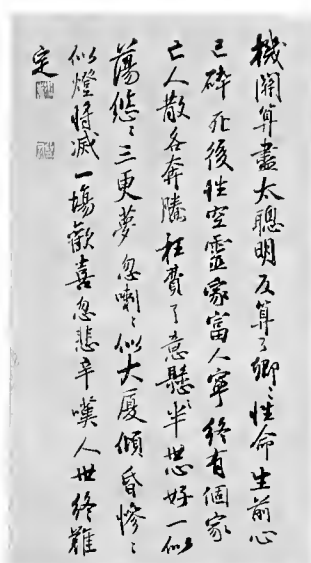 機關算盡太聰明反算了卿〻性命生前心
已碎死後性空靈家富人寧終有個家
亡人散各奔騰枉費了意懸〻半世心好一似
蕩悠〻三更夢忽喇〻似大廈傾昏慘〻
似燈將滅一場歡喜忽悲辛嘆人世終難
定